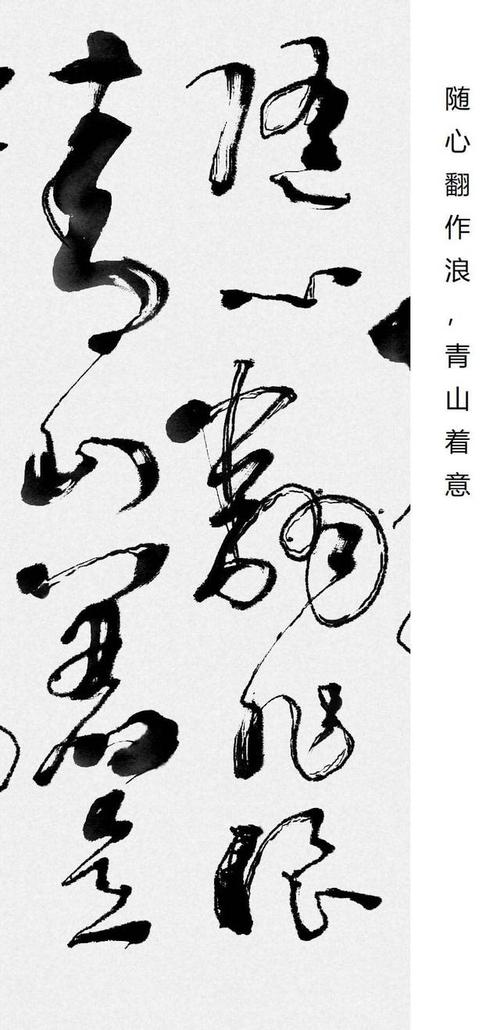 随心翻作浪
青山着意
随心翻作浪，青山着意